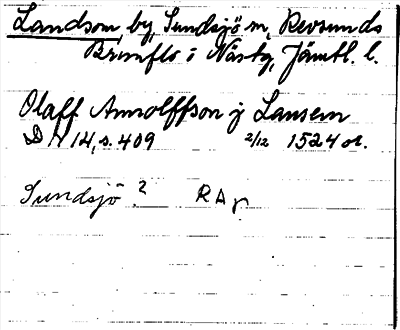 Landsom, by, Sundsjö sn, Revsunds
Brunflo i Näsby, Jämtl. l.
Olaff Amolffson j Lansem
D N 14, s. 409 2/12 1524 or.
Sundsjö? RAp